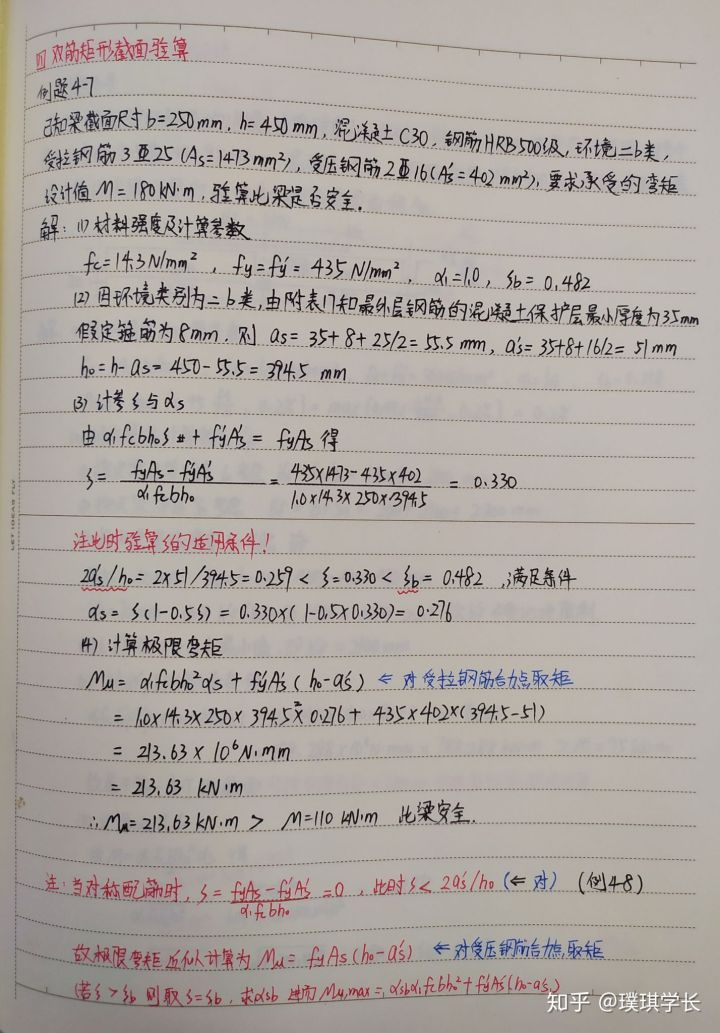 四 双筋矩形截面验算
例题4-7
已知梁截面尺寸b=250mm, h=450mm, 混凝土C30, 钢筋HRB500级, 环境二b类,
受拉钢筋3亚25(As=1473mm²), 受压钢筋2亚16(A's=402mm²), 要求承受的弯矩
设计值M=180kN·m, 验算此梁是否安全.
解: (1) 材料强度及计算参数
fc=14.3N/mm², fy=fy'=435N/mm², α1=1.0, ξb=0.482
(2) 因环境类别为二b类, 由附表17知最外层钢筋的混凝土保护层最小厚度为35mm
假定箍筋为8mm, 则 as=35+8+25/2=55.5mm, a's=35+8+16/2=51mm
h0=h-as=450-55.5=394.5 mm
(3) 计算ξ与αs
由α1fcbh0ξ+fy'A's=fyAs得
ξ=(fyAs-fy'A's)/(α1fcbh0)=(435×1473-435×402)/(1.0×14.3×250×394.5)=0.330
注此时验算ξ的适用条件!
2a's/h0=2×51/394.5=0.259<ξ=0.330<ξb=0.482, 满足条件
αs=ξ(1-0.5ξ)=0.330×(1-0.5×0.330)=0.276
(4) 计算极限弯矩
Mu=α1fcbh0²αs+fy'A's(h0-a's) ⇐对受拉钢筋合力点取矩
=1.0×14.3×250×394.5²×0.276+435×402×(394.5-51)
=213.63×10⁶N·mm
=213.63 kN·m
∴Mu=213.63kN·m > M=110kN·m 此梁安全.
注: 当对称配筋时, ξ=(fyAs-fy'A's)/(α1fcbh0)=0, 此时ξ<2a's/h0 (⇐对) (例4-8)
故极限弯矩近似计算为Mu=fyAs(h0-a's) ⇐对受压钢筋合力点取矩
(若ξ>ξb 则取ξ=ξb, 求αsb 进而Mu,max=αsbα1fcbh0²+fy'A's(h0-a's)
LET IDEAS FLY
知乎 @璞琪学长